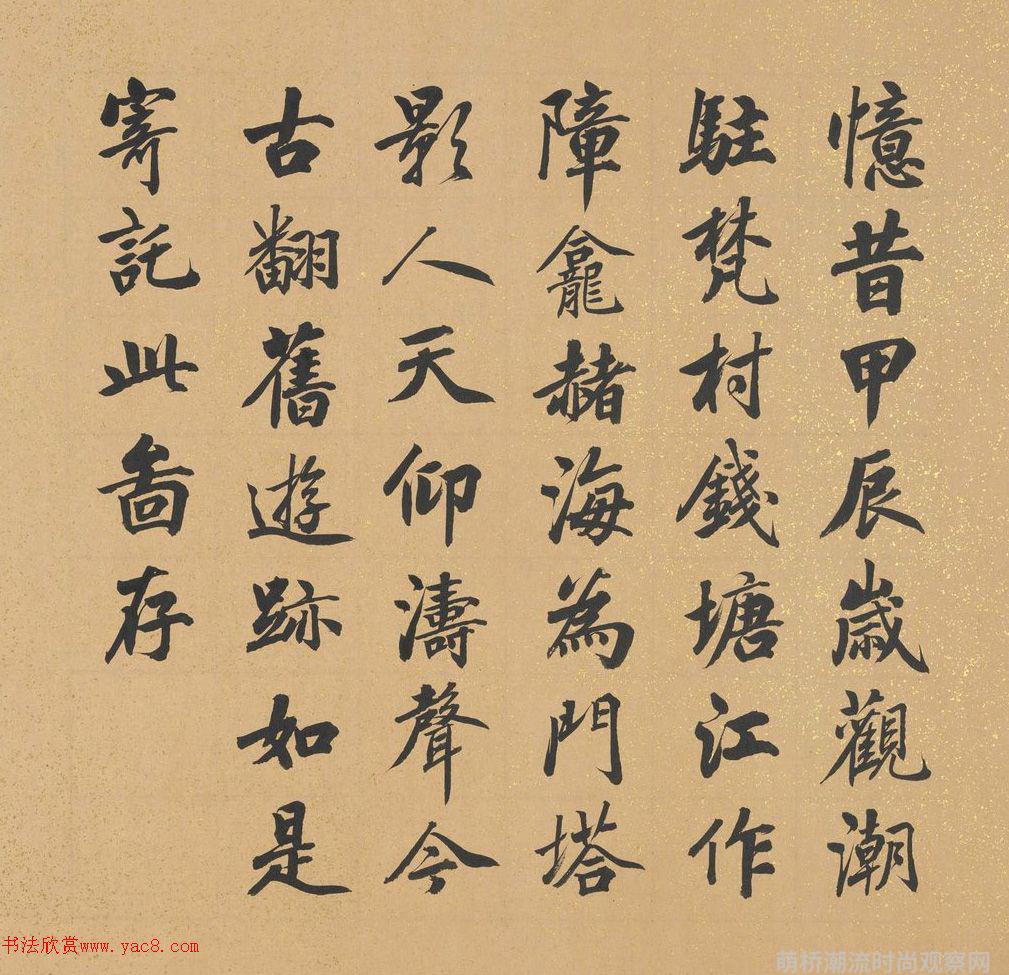 憶昔甲辰歲觀潮
駐梵村錢塘江作
障龕赭海為門塔
影人天仰濤聲今
古翻舊遊跡如是
寄託此啚存
书法欣赏www.yac8.com
萌桥潮流时尚观察网